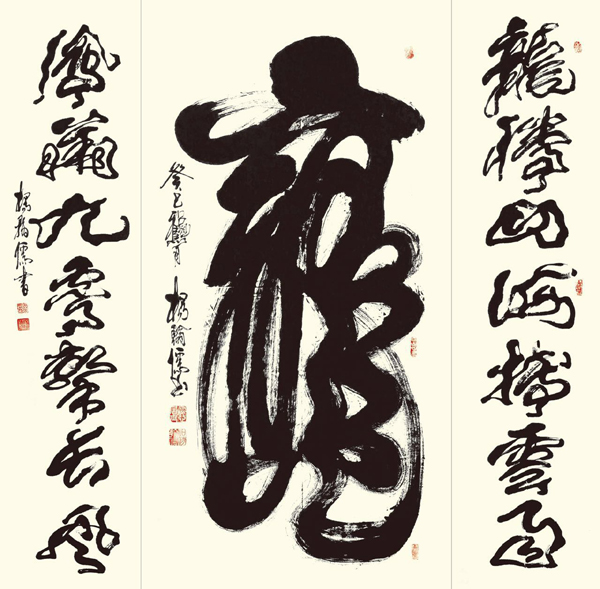 龍騰四海雲雨
龍
癸巳月
楊翰儒書
鳳九霄擊長風
楊翰儒書